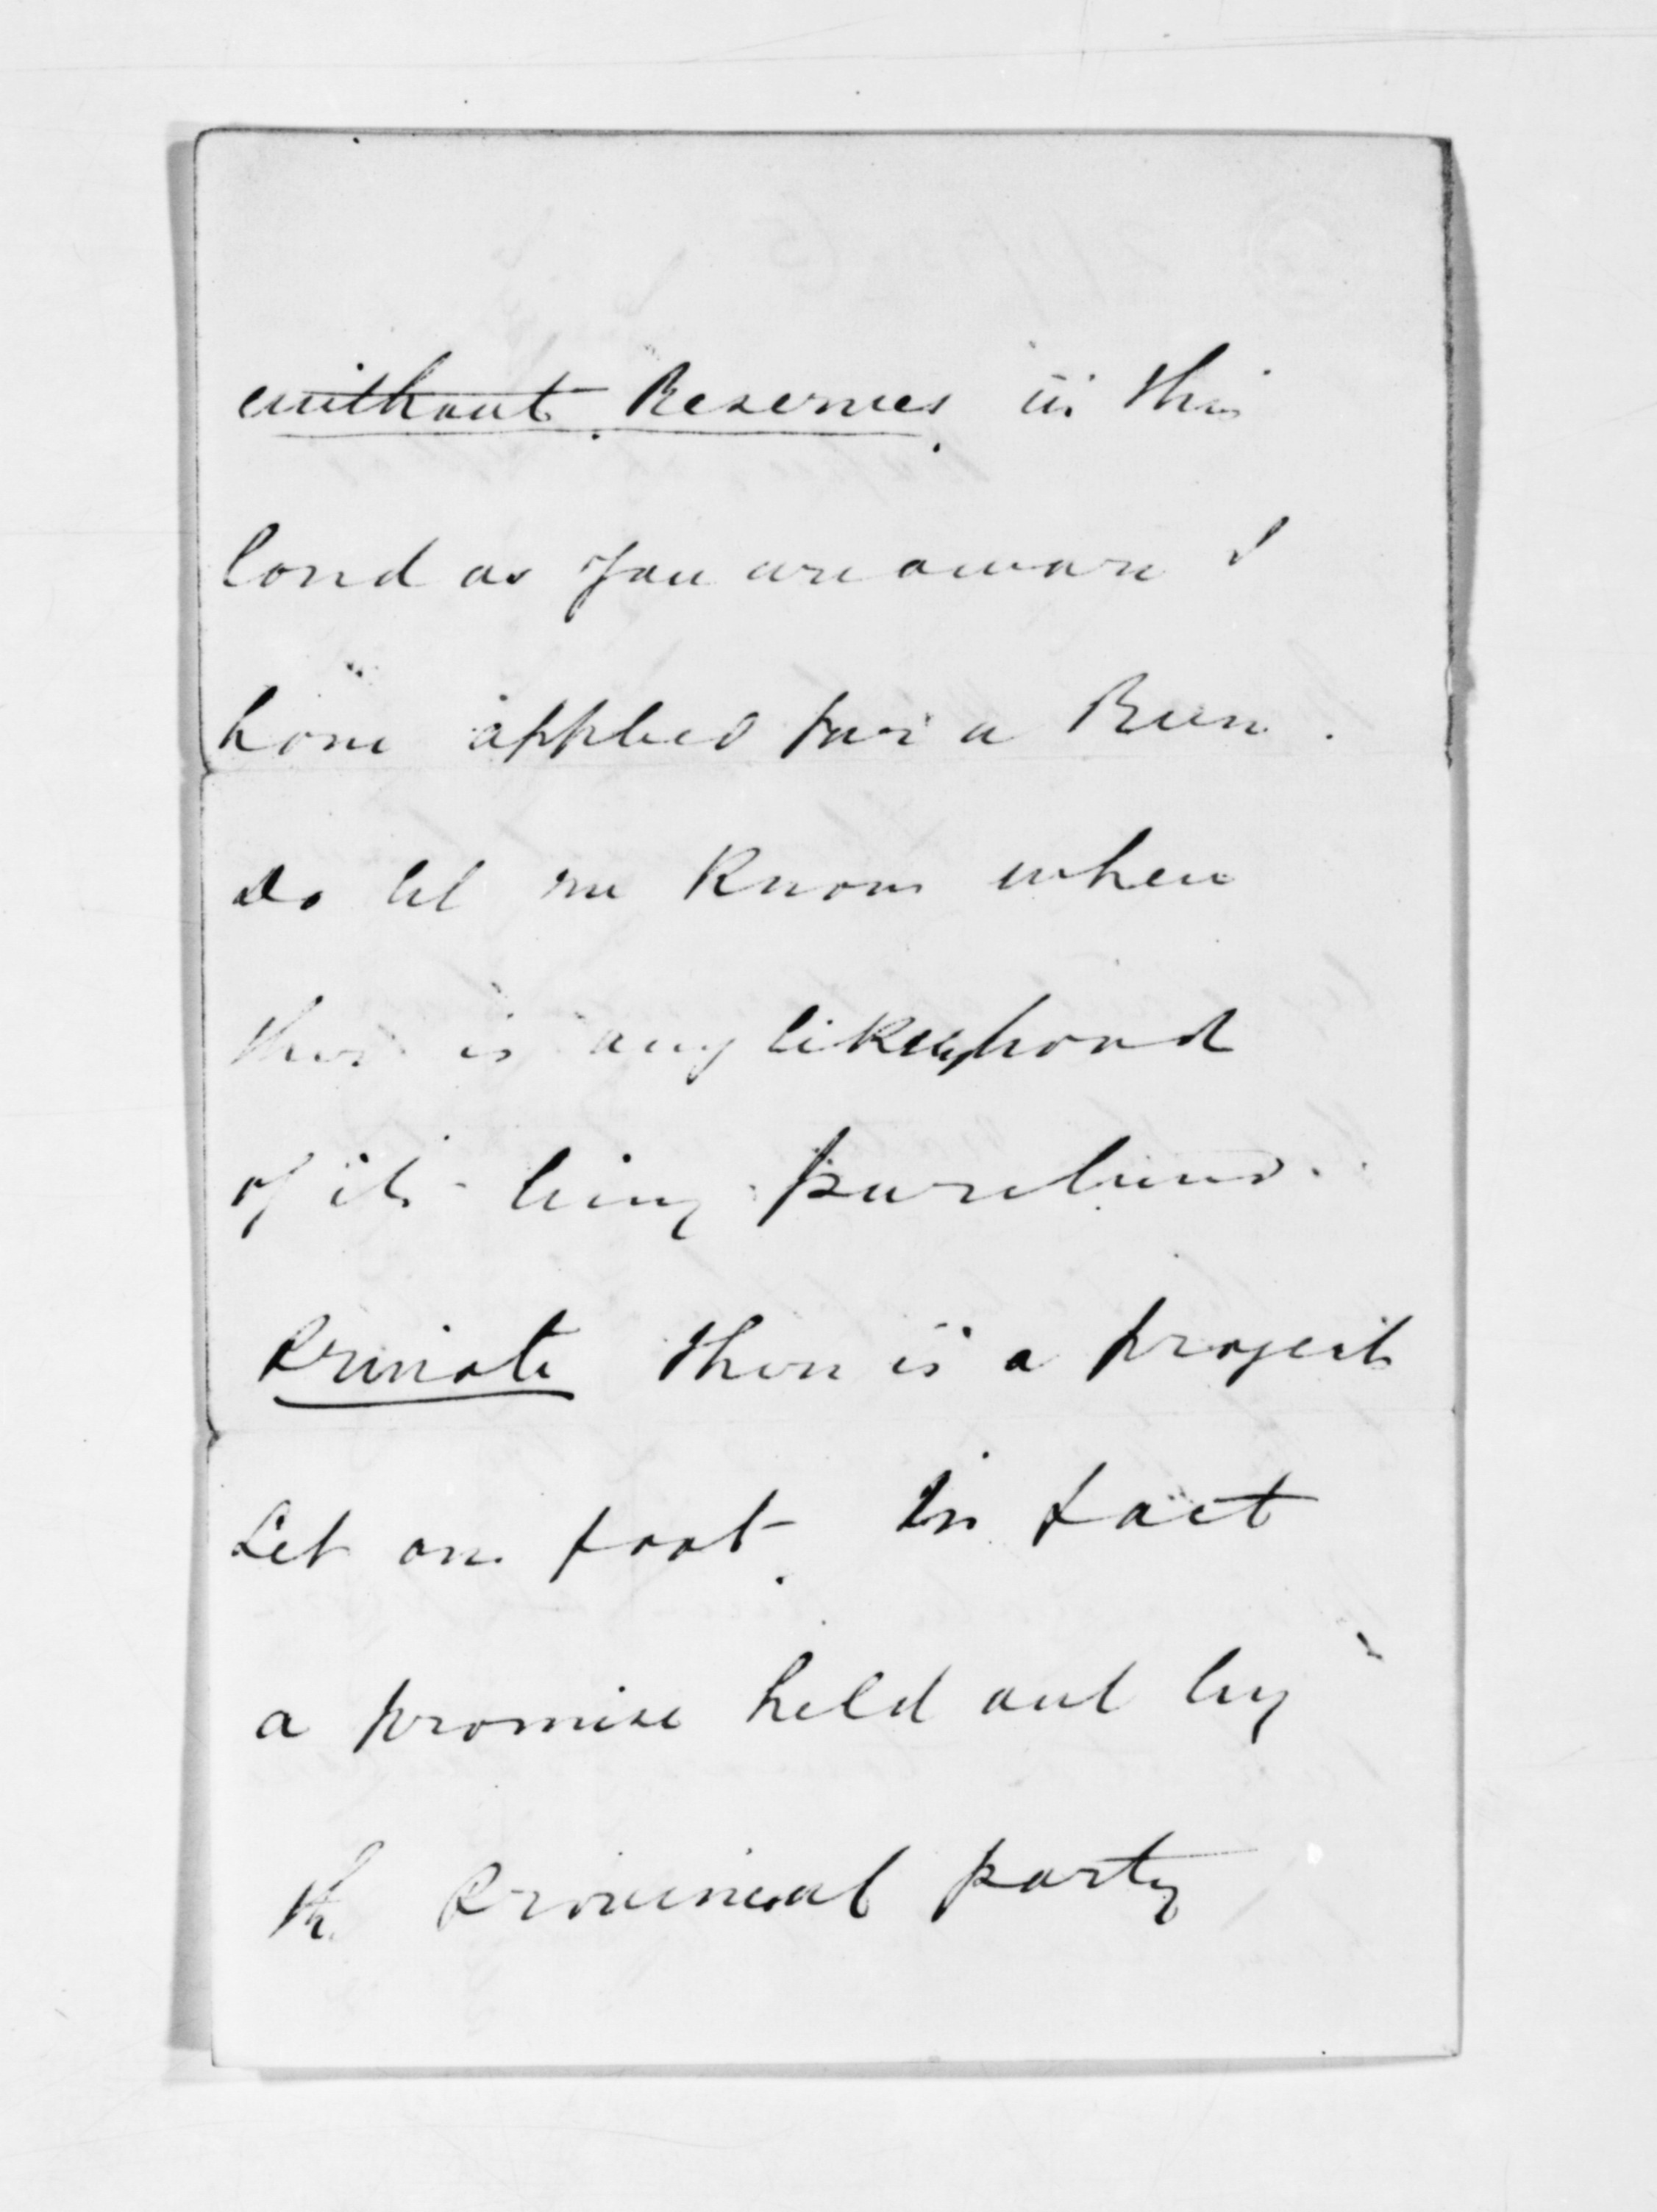 without Reserves in this
land as you are aware I
have applied for a Run.
do let me know when
there is any likelyhood
of its being purchased.
Private there is a project
Set on foot. In fact
a promise held out by
the Provincial party